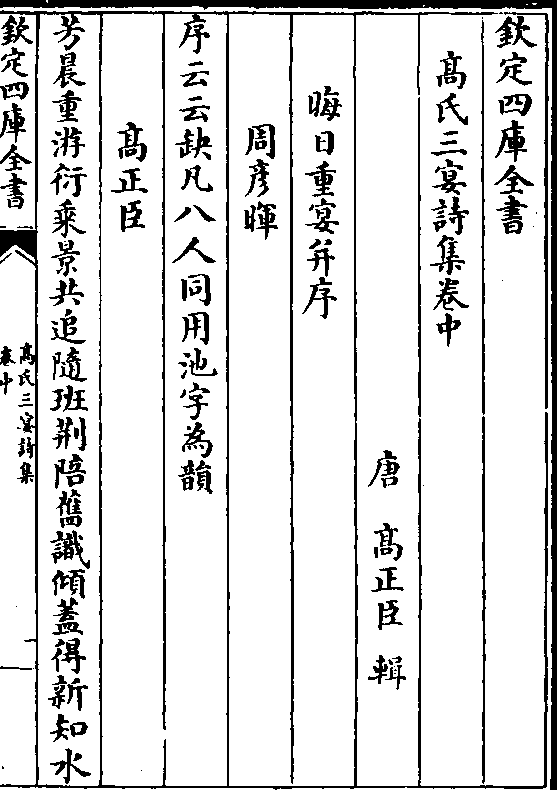 欽定四庫全書
髙氏三宴詩集卷中
唐 髙正臣 輯
晦日重宴并序
周彦暉
序云云缺凡八人同用池字為韻
髙正臣
芳晨重游衍乗景共追隨班荆陪舊識傾葢得新知水
欽定四庫全書
髙氏三宴詩集
卷中
一